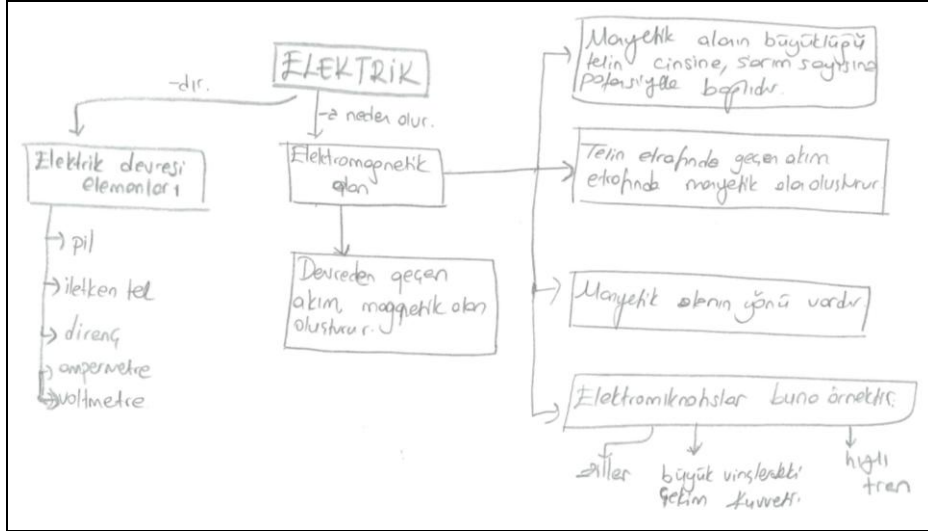 ELEKTRİK
-dır.
-e neden olur.
Elektrik devresi
elemanları
pil
iletken tel
direnç
ampermetre
voltmetre
Elektromagnetik
alan
Devreden geçen
akım, magnetik alan
oluşturur.
Manyetik alanın büyüklüğü
telin cinsine, sarım sayısına
potansiyele bağlıdır.
Telin etrafında geçen akım
etrafında manyetik alan oluşturur.
Manyetik alanın yönü vardır
Elektromıknatıslar buna örnektir.
ziller
büyük vinçlerdeki
çekim kuvveti.
hızlı
tren